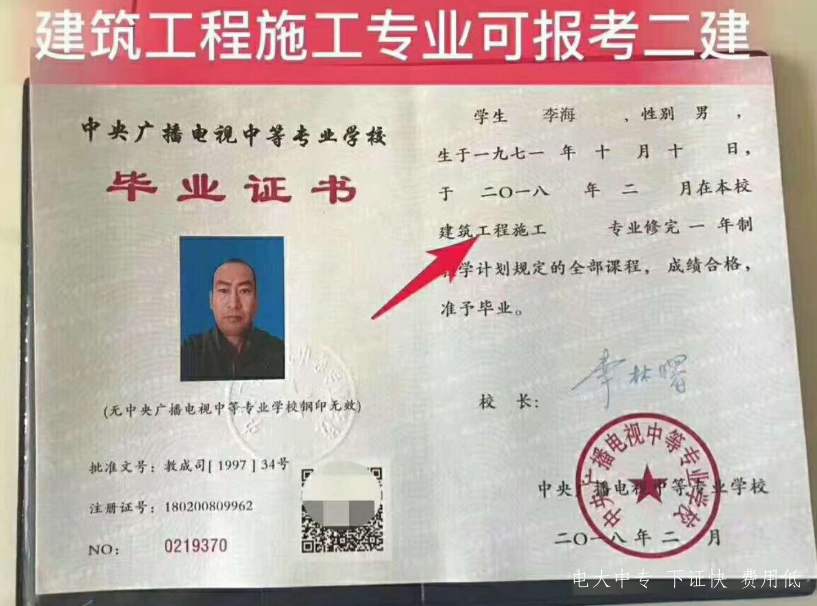 建筑工程施工专业可报考二建
中央广播电视中等专业学校
毕业证书
(无中央广播电视中等专业学校钢印无效)
批准文号：教成司[1997]34号
注册证号：180200809962
NO： 0219370
学生 李海 ，性别 男 ，
生于一九七一 年 十 月 十 日，
于 二〇一八 年 二 月在本校
建筑工程施工 专业修完 一 年制
学计划规定的全部课程，成绩合格，
准予毕业。
校 长：
中央广播电视中等专业学校
中央广播电视中等专业学校
二〇一八 年 二 月
电大中专 下证快 费用低